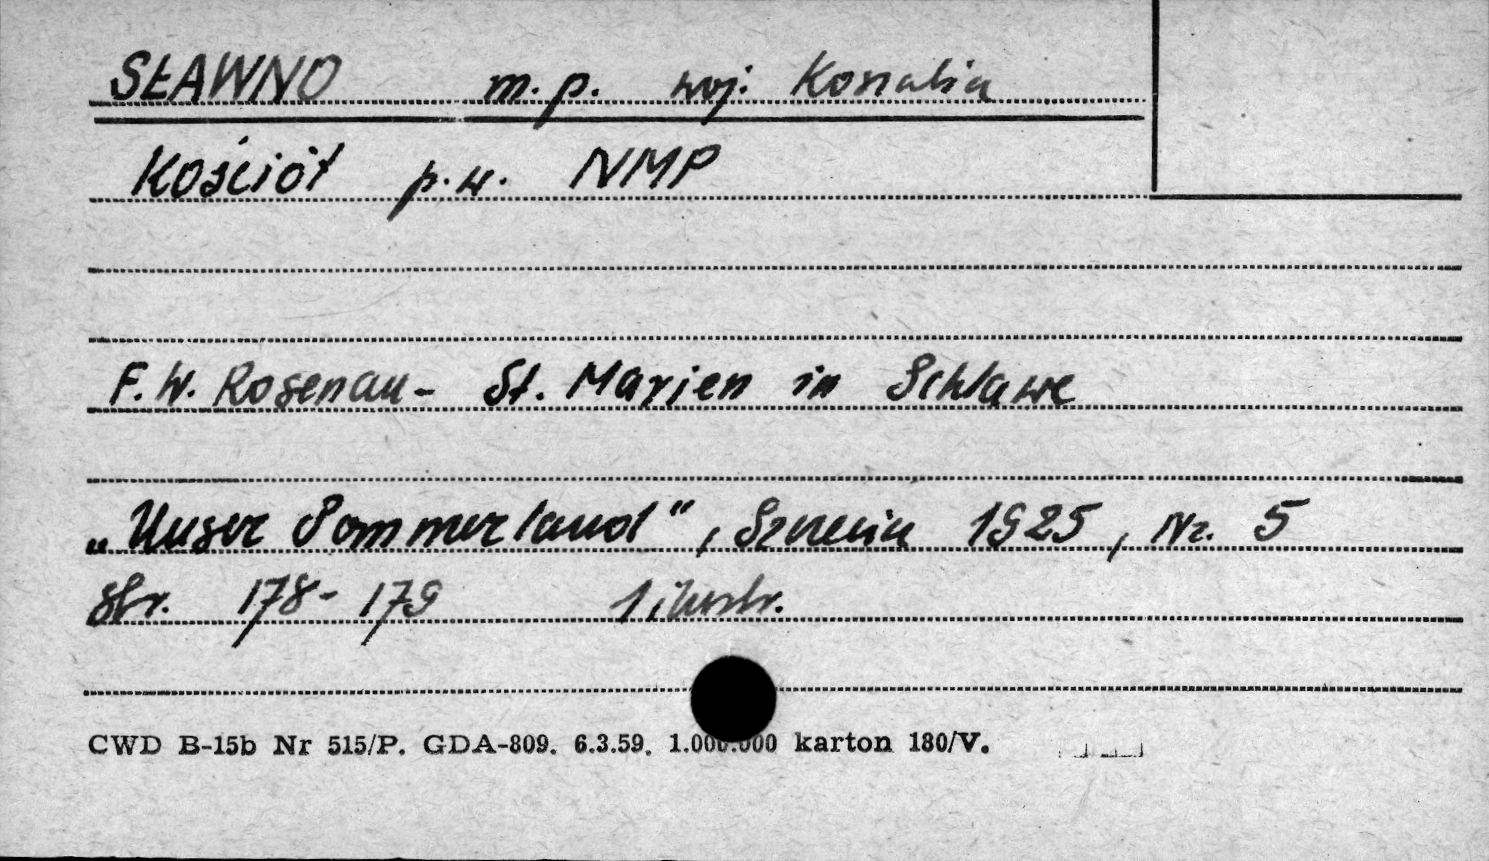 SŁAWNO m.p. woj. Koszalin
Kościół p.w. NMP
F.W. Rosenau- St. Marien in Schlawe
„Unser Pommerland”, Szczecin 1925, Nr. 5
Str. 178-179 1 ilustr.
CWD B-15b Nr 515/P. GDA-809. 6.3.59. 1.000.000 karton 180/V.